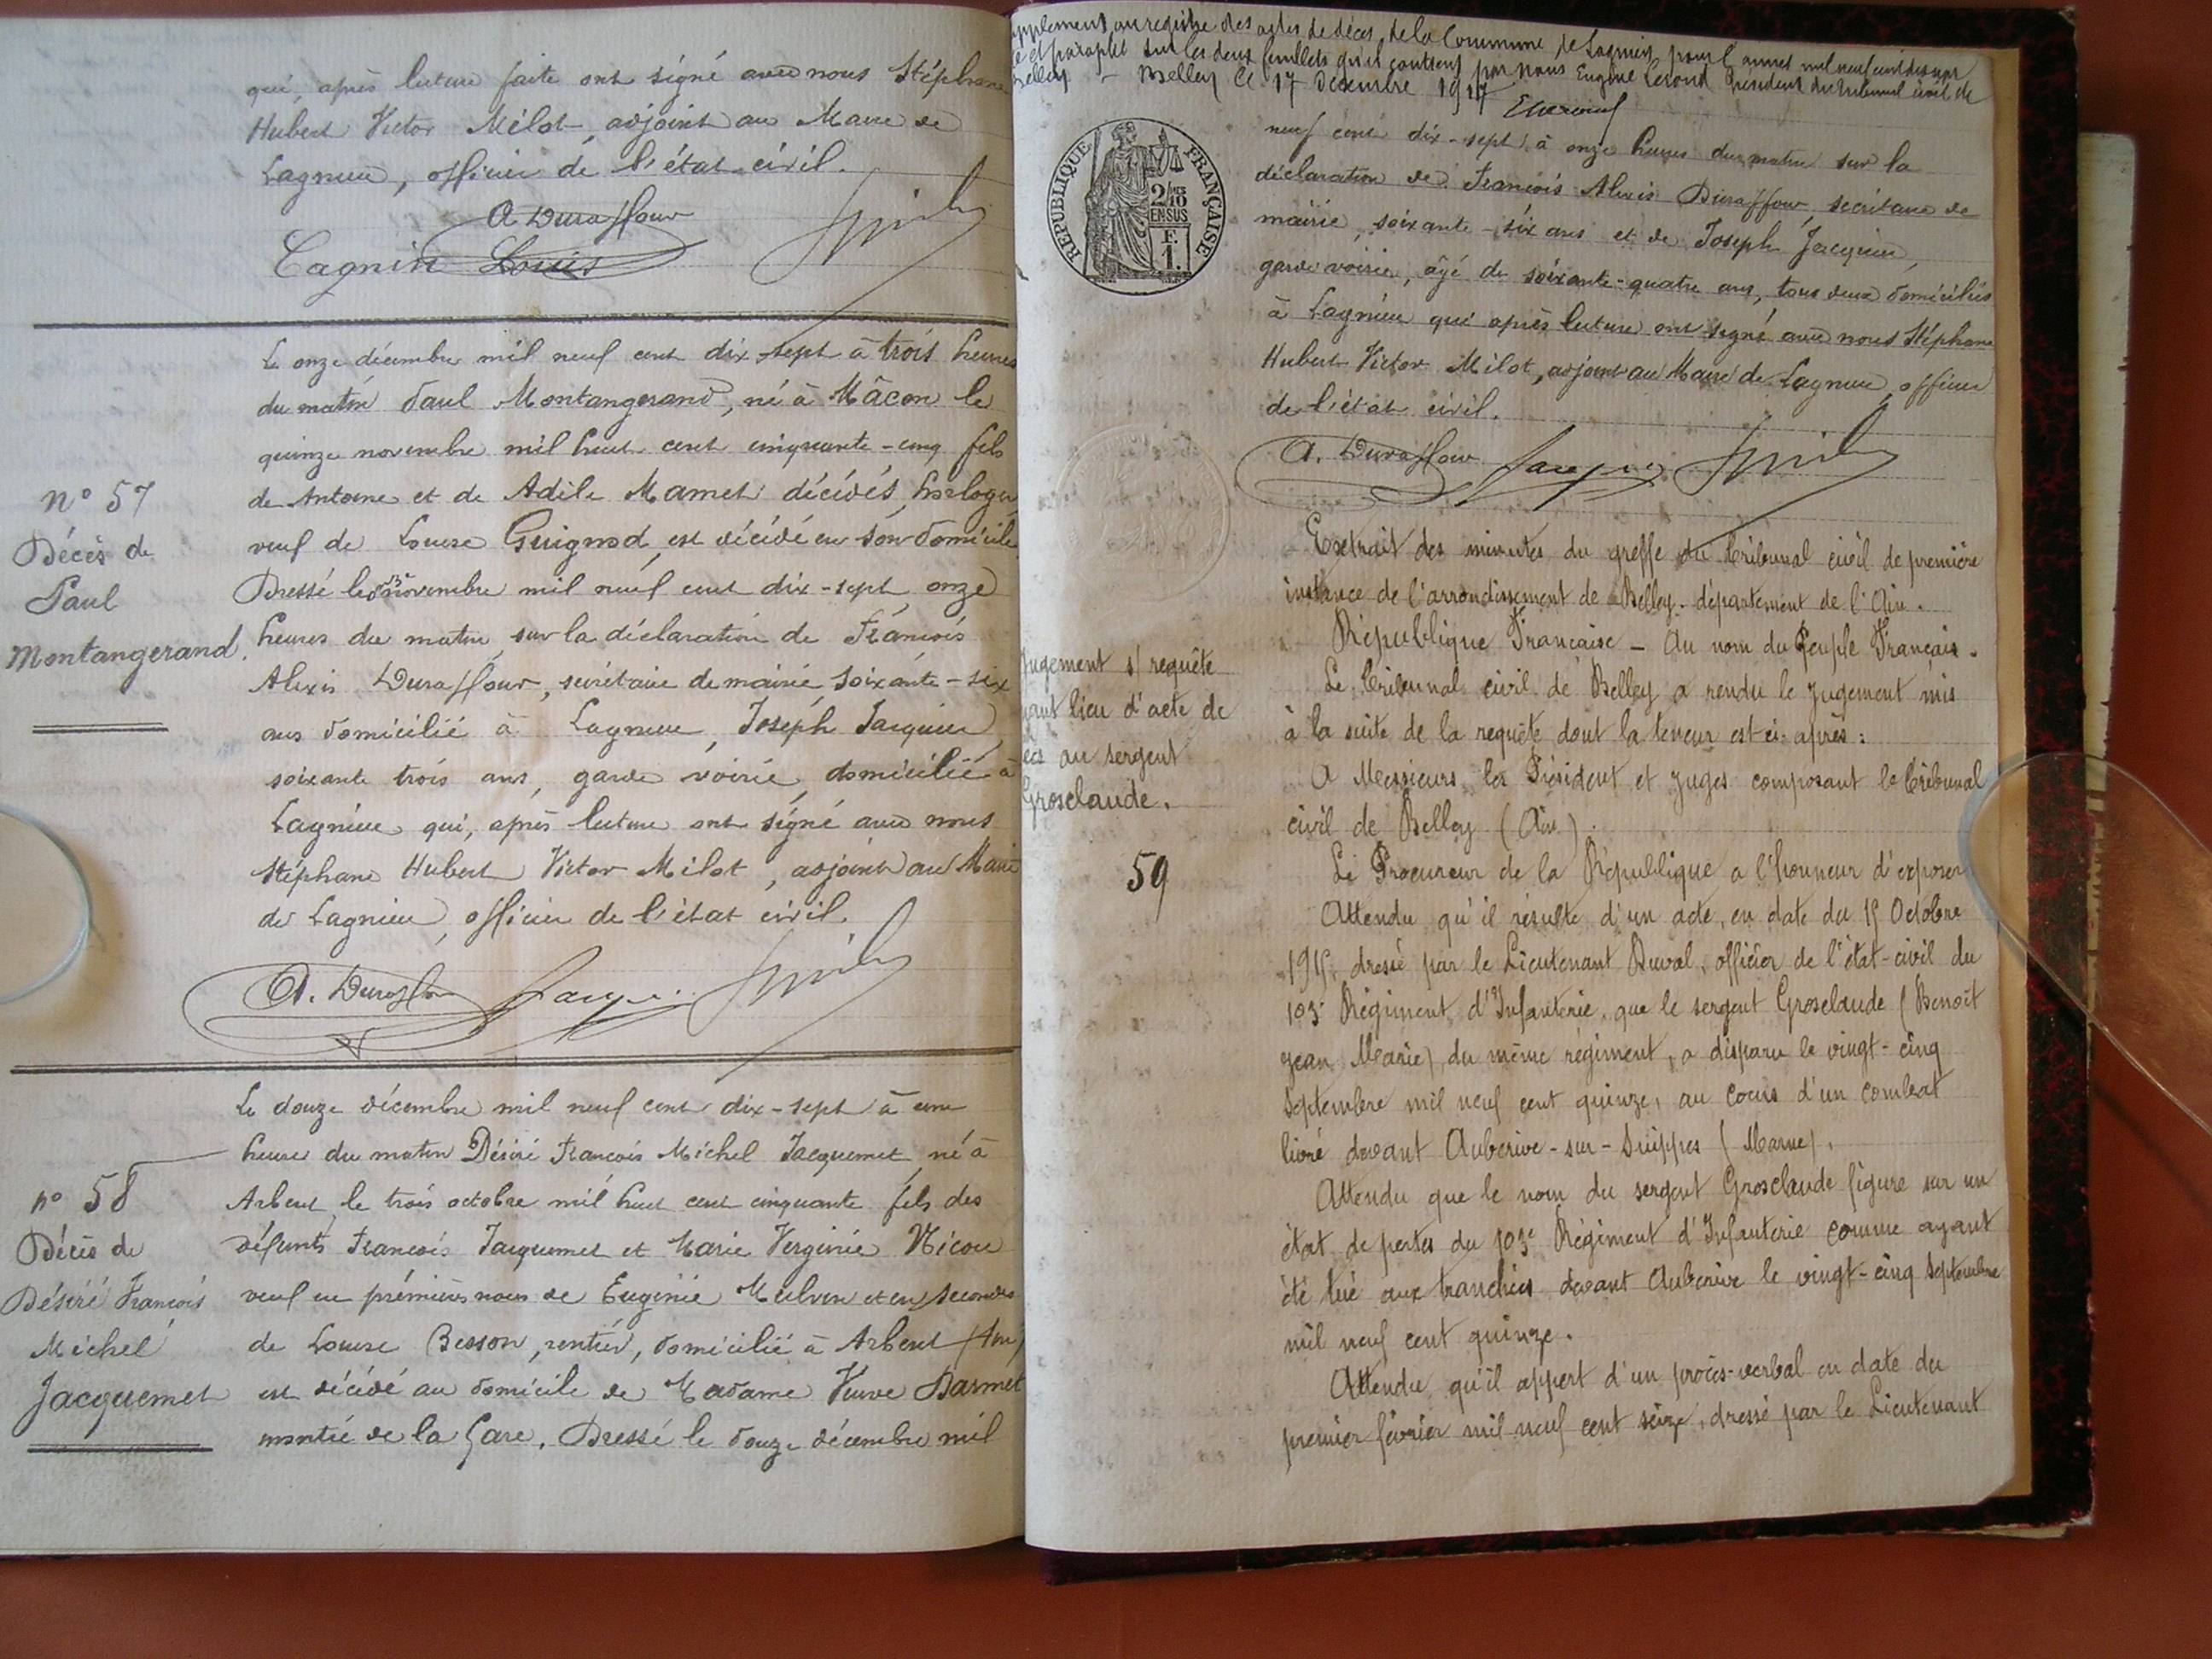 qui, après lecture faite ont signé avec nous Stéphane
Hubert Victor Milot, adjoint au Maire de
Lagnieu, officier de l'état-civil.
A Duraffour
Cagnin Louis
Le onze décembre mil neuf cent dix sept à trois heures
du matin Paul Montangerand, né à Mâcon le
quinze novembre mil huit cent cinquante-cinq fils
de Antoine et de Adèle Mamet décédés, horloger
veuf de Louise Guignod, est décédé en son domicile
Dressé le novembre mil neuf cent dix-sept, onze
heures du matin, sur la déclaration de François
Alexis Duraffour, secrétaire de mairie soixante-six
ans domicilié à Lagnieu, Joseph Jacquier,
soixante trois ans, garde voirie, domicilié à
Lagnieu qui, après lecture ont signé avec nous
Stéphane Hubert Victor Milot, adjoint au Maire
de Lagnieu, officier de l'état civil.
n° 57
Décès de
Paul
Montangerand.
A. Duraffour
Le douze décembre mil neuf cent dix-sept à une
heure du matin Désiré François Michel Jacquemet, né à
Arbent le trois octobre mil huit cent cinquante fils des
défunts François Jacquemet et Marie Verginie
veuf en premières noces de Eugénie et en secondes
de Louise Besson, rentier, domicilié à Arbent (Ain)
est décédé au domicile de Madame Veuve Darmet
montée de la Gare. Dressé le douze décembre mil
n° 58
Décès de
Désiré François
Michel
Jacquemet
supplément au registre des actes de décès de la Commune de Lagnieu pour l'année mil neuf cent dix sept
et paraphé sur les deux feuillets qu'il contient par nous Eugène Président du tribunal civil de
Belley - Belley le 17 Décembre 1917
REPUBLIQUE FRANÇAISE
2/10
EN SUS
F.
1.
neuf cent dix-sept, à onze heures du matin sur la
déclaration de François Alexis Duraffour, secrétaire de
mairie, soixante-six ans et de Joseph Jacquier,
garde voirie, âgé de soixante-quatre ans, tous deux domiciliés
à Lagnieu qui après lecture ont signé avec nous Stéphane
Hubert Victor Milot, adjoint au Maire de Lagnieu, officier
de l'état civil.
A. Duraffour
Extrait des minutes du greffe du tribunal civil de première
instance de l'arrondissement de Belley. département de l'Ain.
République Française - Au nom du Peuple Français.
Le Tribunal civil de Belley a rendu le jugement mis
à la suite de la requête dont la teneur est ci-après:
A Messieurs les Président et Juges composant le Tribunal
civil de Belley (Ain).
Le Procureur de la République a l'honneur d'exposer
Attendu qu'il résulte d'un acte, en date du 15 Octobre
1915, dressé par le Lieutenant Duval, officier de l'état-civil du
103e Régiment d'Infanterie, que le sergent Grosclaude (Benoît
Jean Marie) du même régiment, a disparu le vingt-cinq
Septembre mil neuf cent quinze, au cours d'un combat
livré devant Auberive-sur-Suippes (Marne).
Attendu que le nom du sergent Grosclaude figure sur un
état de pertes du 103e Régiment d'Infanterie comme ayant
été tué aux tranchées devant Auberive le vingt-cinq Septembre
mil neuf cent quinze.
Attendu qu'il appert d'un procès-verbal en date du
premier février mil neuf cent seize, dressé par le Lieutenant
Jugement s/ requête
nant lieu d'acte de
écès au sergent
Grosclaude.
59